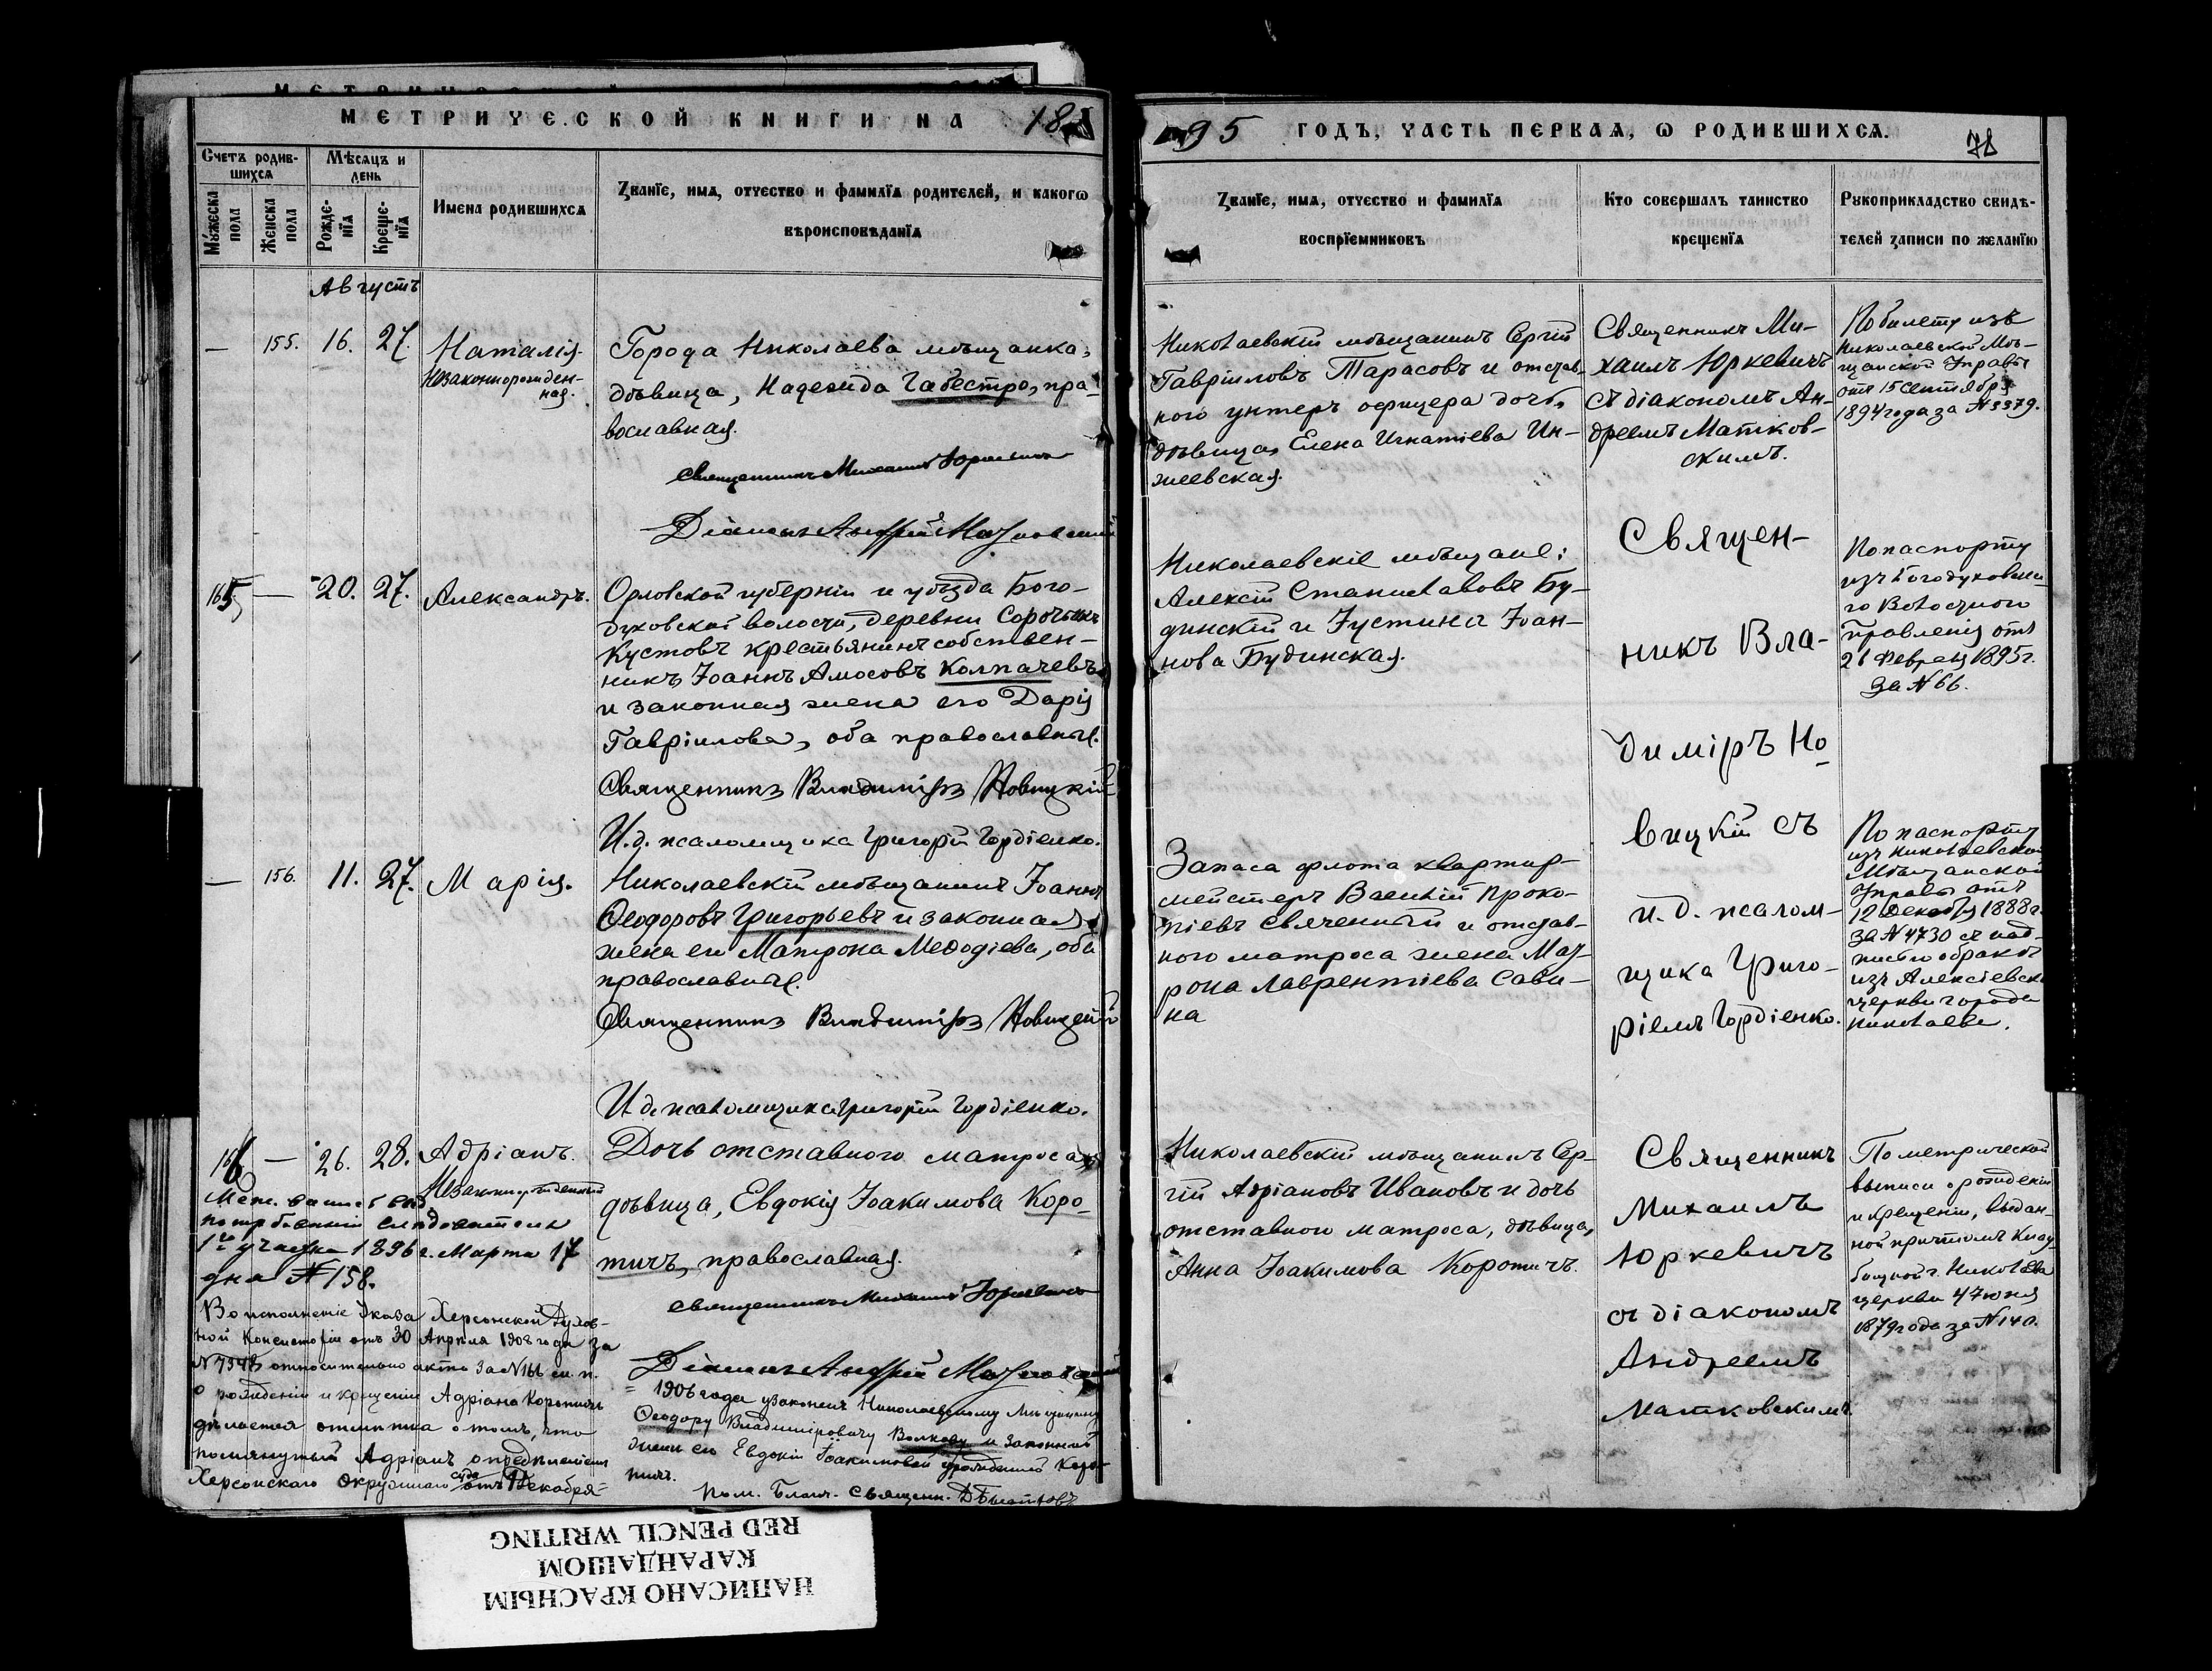 МЕТРИЧЕСКОЙ КНИГИ НА 18
95 ГОДЪ, ЧАСТЬ ПЕРВАѦ, Ѡ РОДИВШИХСѦ.
78
Счетъ родив-
шихсѧ
Мѣсѧцъ и
день
Мꙋжеска
пола
Женска
пола
Рожде-
нїѧ
Креще-
нїѧ
Имена родившихсѧ
Званїе, имѧ, отчество и фамилїѧ родителей, и какогѡ
вѣроисповѣданїѧ
Званїе, имѧ, отчество и фамилїѧ
воспрїемниковъ
Кто совершалъ таинство
крещенїѧ
Рꙋкоприкладство свидѣ-
телей записи по желанїю
Августъ
— 155. 16. 27.
Наталія
Незаконнорожден-
ная.
Города Николаева мѣщанка,
дѣвица, Надежда Габестро, пра-
вославная.
Священникъ Михаилъ Юркевичъ
Діаконъ Андрей Матковскій
Николаевскій мѣщанинъ Сергій
Гавріиловъ Тарасовъ и отстав-
ного унтеръ офицера дочь,
дѣвица, Елена Игнатіева Ин-
жеевская.
Священникъ Ми-
хаилъ Юркевичъ
съ діакономъ Ан-
дреемъ Матков-
скимъ.
По билету изъ
Николаевской Мѣ-
щанской Управы
отъ 15 Сентября
1894 года за № 3379.
165 — 20. 27. Александръ.
Орловской губерніи и уѣзда Бого-
духовской волости, деревни Сорочьихъ
Кустовъ крестьянинъ собствен-
никъ, Іоаннъ Амосовъ Колпачевъ
и законная жена его Дарія
Гавріилова, оба православные.
Священникъ Владиміръ Новицкій
И. д. псаломщика Григорій Гордіенко.
Николаевскіе мѣщане:
Алексій Станиславовъ Бу-
динскій и Іустина Іоан-
нова Будинская.
Священ-
никъ Вла-
диміръ Но-
вицкій съ
и. д. псалом-
щика Григо-
ріемъ Гордіенко.
По паспорту
изъ Богодуховска-
го Волостного
Правленія отъ
21 Февраля 1895 г.
за № 66.
— 156. 11. 27. Марія.
Николаевскій мѣщанинъ Іоаннъ
Ѳеодоровъ Григорьевъ и законная
жена его Матрона Меѳодіева, оба
православные.
Священникъ Владиміръ Новицкій
И. д. псаломщика Григорій Гордіенко.
Запаса флота квартир-
мейстеръ Василій Проко-
піевъ Свяченный и отстав-
ного матроса жена Мат-
рона Лаврентіева Сави-
на
По паспорту
изъ Николаевской
Мѣщанской
Управы отъ
12 Декабря 1888 г.
за № 4730 съ над-
писью о бракѣ
изъ Алексіевской
церкви города
Николаева.
166 — 26. 28. Адріанъ.
Незаконнорожденный
Дочь отставного матроса,
дѣвица, Евдокія Іоакимова Коро-
тичъ, православная.
Священникъ Михаилъ Юркевичъ
Діаконъ Андрей Матковскій
Николаевскій мѣщанинъ Сер-
гій Адріановъ Ивановъ и дочь
отставного матроса, дѣвица,
Анна Іоакимова Коротичъ.
Священникъ
Михаилъ
Юркевичъ
съ діакономъ
Андреемъ
Матковскимъ.
По метрической
выписи о рожденіи
и крещеніи, выдан-
ной причтомъ Клад-
бищной г. Николаева
церкви 4 Іюня
1879 года за № 140.
1го участка 1896 г. Марта 17
дня № 158.
Во исполненіе Указа Херсонской Духов-
ной Консисторіи отъ 30 Апрѣля 1908 года за
№ 7348 относительно акта за № 166 м. п.
о рожденіи и крещеніи Адріана Коротичъ
дѣлается отмѣтка о томъ, что
помянутый Адріанъ опредѣленіемъ
Херсонскаго Окружнаго суда отъ Декабря
1906 года узаконенъ Николаевскому Мѣщанину
Ѳеодору Владиміровичу Волкову и законной
женѣ его Евдокіи Іоакимовой урожденной Коро-
тичъ.
Пом. Благ. Священ.
НАПИСАНО КРАСНЫМ
КАРАНДАШОМ
RED PENCIL WRITING